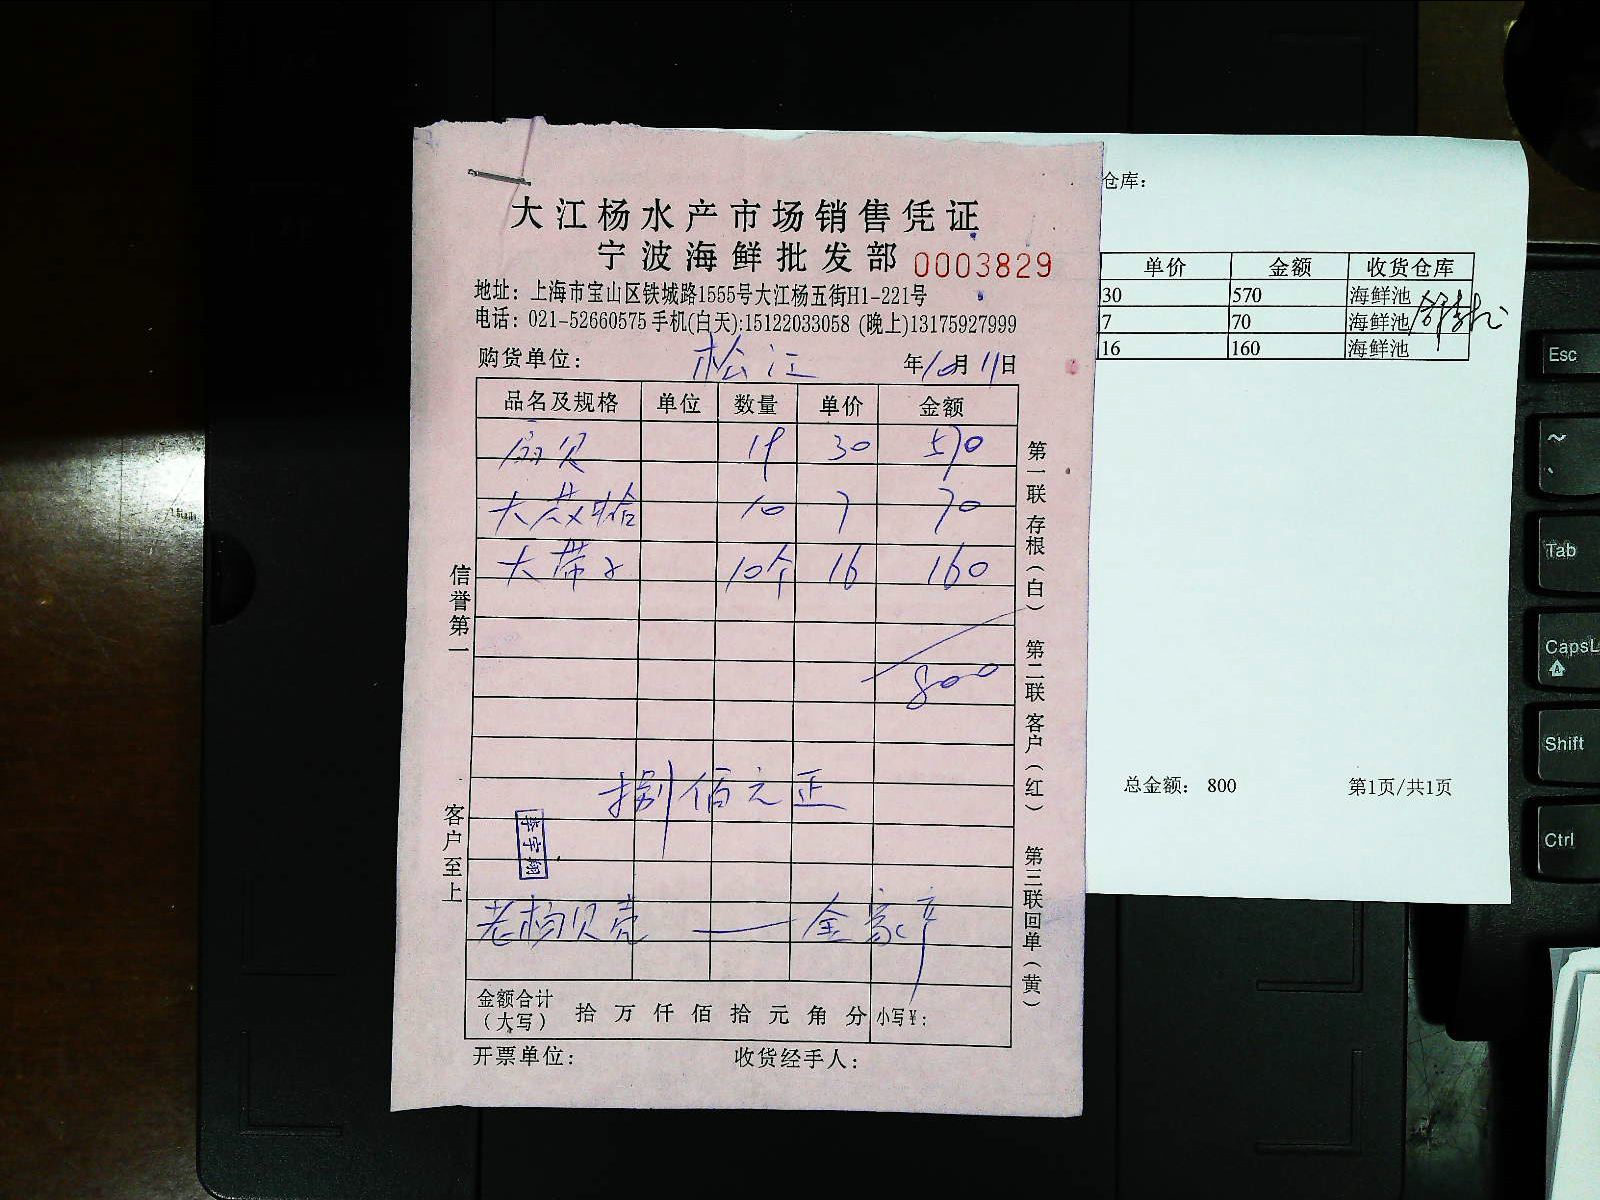 大江杨水产市场销售凭证
宁波海鲜批发部 0003829
地址：上海市宝山区铁城路1555号大江杨五街H1-221号
电话：021-52660575 手机(白天):15122033058 (晚上)13175927999
购货单位： 松江 年10月11日
品名及规格 单位 数量 单价 金额
扇贝 19 30 570
大散蛤 10 7 70
大带子 10个 16 160
800
捌佰元正
老杨贝壳 — 金家
金额合计（大写） 拾 万 仟 佰 拾 元 角 分 小写￥：
开票单位： 收货经手人：
信誉第一
客户至上
第一联存根（白） 第二联客户（红） 第三联回单（黄）
仓库：
单价 金额 收货仓库
30 570 海鲜池
7 70 海鲜池
16 160 海鲜池
总金额： 800 第1页/共1页
Esc
~
`
Tab
CapsL
Shift
Ctrl